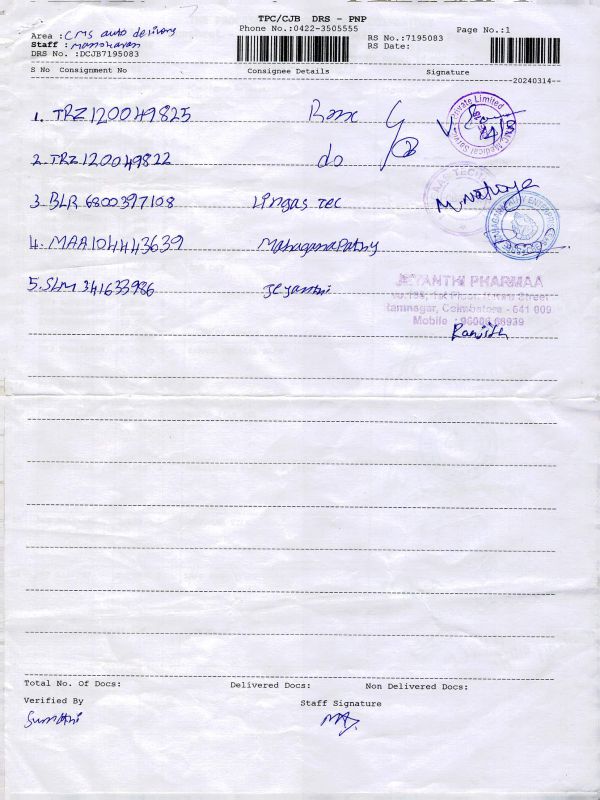 TPC/CJB DRS - PNP
Area : CMS auto delivery
Phone No.:0422-3505555
RS No.:7195083
Page No.:1
Staff : Manoharan
RS Date:
DRS No. :DCJB7195083
S No Consignment No Consignee Details Signature
20240314
1. TRZ120049825
Private Limited
2. TRZ120049822 do
3. BLR 6800397108 Lingas Tec
4. MAA104443639 Mahaganapathy
5. SLM 341633986 Jeyanthi
JEYANTHI PHARMAA
1st Floor, Street
Ramnagar, Coimbatore - 641 009
Mobile :
Ranjith
Total No. Of Docs: Delivered Docs: Non Delivered Docs:
Verified By Staff Signature
Sumathi